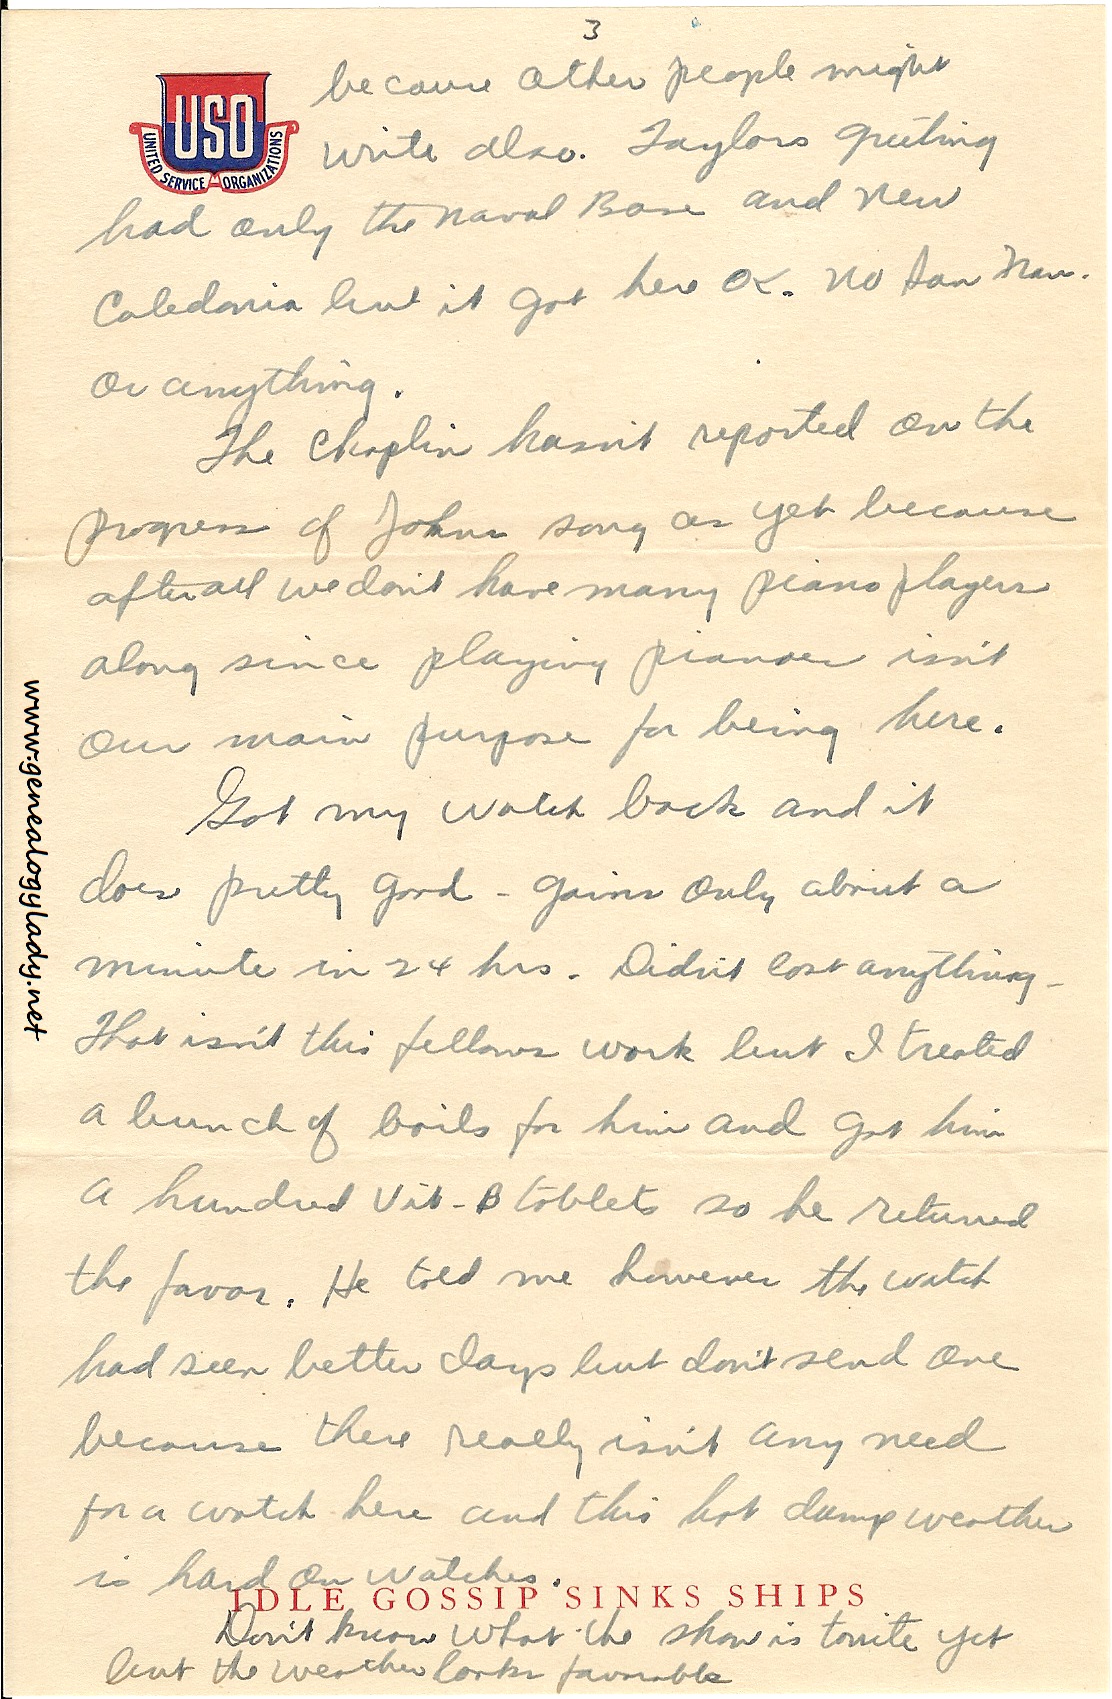 3
USO
UNITED SERVICE ORGANIZATIONS
because other people might
write also. Taylors greeting
had only the Naval Base and New
Caledonia but it got here OK. No San Fran.
or anything.
The Chaplin hasn't reported on the
progress of Johns song as yet because
after all we don't have many piano players
along since playing pianoes isn't
our main purpose for being here.
Got my watch back and it
does pretty good - gains only about a
minute in 24 hrs. Didn't cost anything -
That isn't this fellows work but I treated
a bunch of boils for him and got him
a hundred Vit-B tablets so he returned
the favor. He told me however the watch
had seen better days but don't send one
because there really isn't any need
for a watch here and this hot damp weather
is hard on watches.
IDLE GOSSIP SINKS SHIPS
Don't know what the show is tonite yet
but the weather looks favorable
www.genealogylady.net